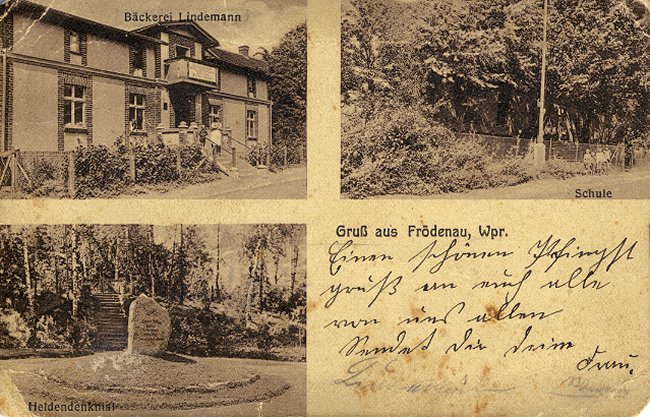 Bäckerei Lindemann
Schule
Gruß aus Frödenau, Wpr.
Einen schönen Pfingst
gruß an euch alle
von uns allen
Sendet Dir deine
Frau.
Heldendenkmal